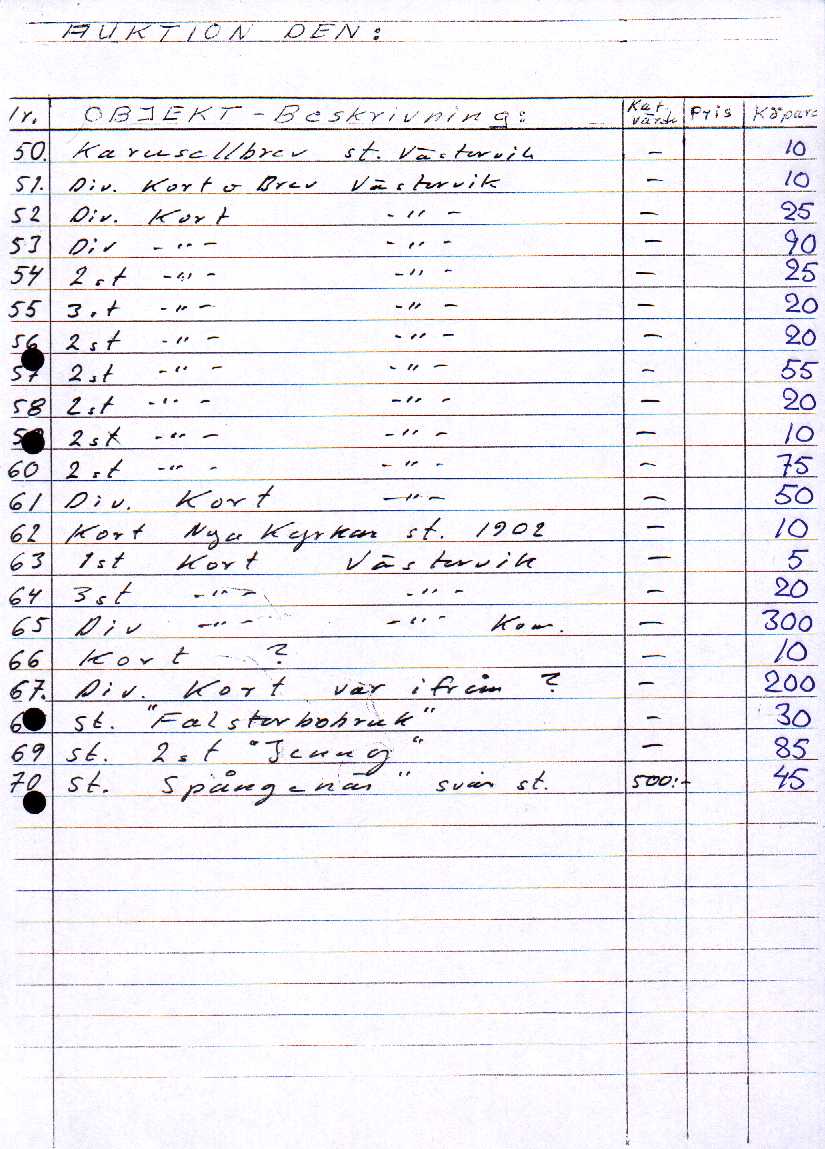 AUKTION DEN:
Nr. OBJEKT - Beskrivning: Kat. värde Pris Köpare
50. Karusellbrev st. Västervik — 10
51. Div. Kort o Brev Västervik — 10
52 Div. Kort -"- — 25
53 Div -"- -"- — 90
54 2st -"- -"- — 25
55 3.t -"- -"- — 20
56 2st -"- -"- — 20
57 2st -"- -"- — 55
58 2st -"- -"- — 20
59 2st -"- -"- — 10
60 2st -"- -"- — 75
61 Div. Kort -"- — 50
62 Kort Nya Kyrkan st. 1902 — 10
63 1st Kort Västervik — 5
64 3st -"- -"- — 20
65 Div -"- -"- Kom. — 300
66 Kort ? — 10
67. Div. Kort var ifrån ? — 200
6 st. "Falsterbobruk" — 30
69 st. 2st "Jenny" — 85
70 st. Spångenäs" svår st. 500:- 45